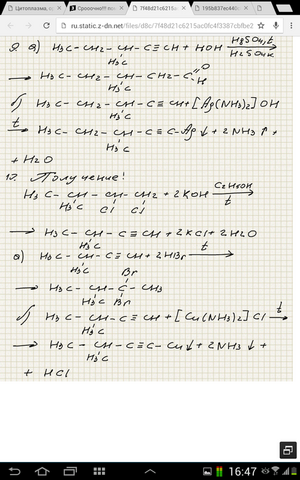 Цитоплазма, о
Срооочно!!! п
7f48d21c6215ac
195b837ec440
ru.static.z-dn.net/files/d8c/7f48d21c6215ac0fc4f3387cbfbe2
9 а) H3C-CH2-CH-C≡CH + HOH HgSO4, t
H3C H2SO4 к
→ H3C-CH2-CH-CH2-C O
H3C H
б) H3C-CH2-CH-C≡CH + [Ag(NH3)2]OH
H3C
t → H3C-CH2-CH-C≡C-Ag↓ + 2NH3↑ +
H3C
+ H2O
Получение!
H3C-CH-CH-CH2 + 2KOH C2H5OH
H3C Cl Cl t
→ H3C-CH-C≡CH + 2KCl + 2H2O
H3C
а) H3C-CH-C≡CH + 2HBr t →
H3C Br
→ H3C-CH-C-CH3
H3C Br
б) H3C-CH-C≡CH + [Cu(NH3)2]Cl t →
H3C
→ H3C-CH-C≡C-Cu↓ + 2NH3↓ +
H3C
+ HCl
16:47